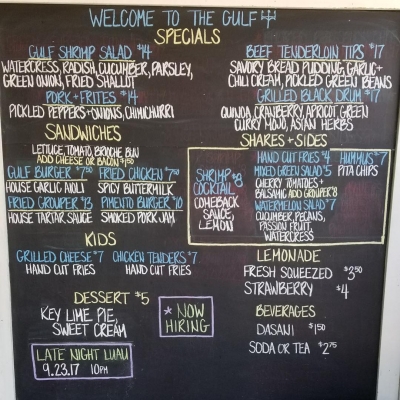 WELCOME TO THE GULF
SPECIALS
GULF SHRIMP SALAD $14
WATERCRESS, RADISH, CUCUMBER, PARSLEY,
GREEN ONION, FRIED SHALLOT
PORK + FRITES $14
PICKLED PEPPERS + ONIONS, CHIMICHURRI
BEEF TENDERLOIN TIPS $17
SAVORY BREAD PUDDING, GARLIC +
CHILI CREAM, PICKLED GREEN BEANS
GRILLED BLACK DRUM $17
QUINOA, CRANBERRY, APRICOT GREEN
CURRY MOJO, ASIAN HERBS
SANDWICHES
LETTUCE, TOMATO, BRIOCHE BUN
ADD CHEESE OR BACON $1.50
GULF BURGER $7.50
HOUSE GARLIC AIOLI
FRIED CHICKEN $7.50
SPICY BUTTERMILK
FRIED GROUPER $13
HOUSE TARTAR SAUCE
PIMENTO BURGER $10
SMOKED PORK JAM
SHARES + SIDES
SHRIMP $8
COCKTAIL
COMEBACK
SAUCE,
LEMON
HAND CUT FRIES $4
MIXED GREEN SALAD $5
CHERRY TOMATOES +
BALSAMIC ADD GROUPER $8
WATERMELON SALAD $7
CUCUMBER, PECANS,
PASSION FRUIT,
WATERCRESS
HUMMUS $7
PITA CHIPS
KIDS
GRILLED CHEESE $7
HAND CUT FRIES
CHICKEN TENDERS $7
HAND CUT FRIES
LEMONADE
FRESH SQUEEZED $3.50
STRAWBERRY $4
DESSERT $5
KEY LIME PIE,
SWEET CREAM
* NOW
HIRING
BEVERAGES
DASANI $1.50
SODA OR TEA $2.75
LATE NIGHT LUAU
9.23.17 10PM